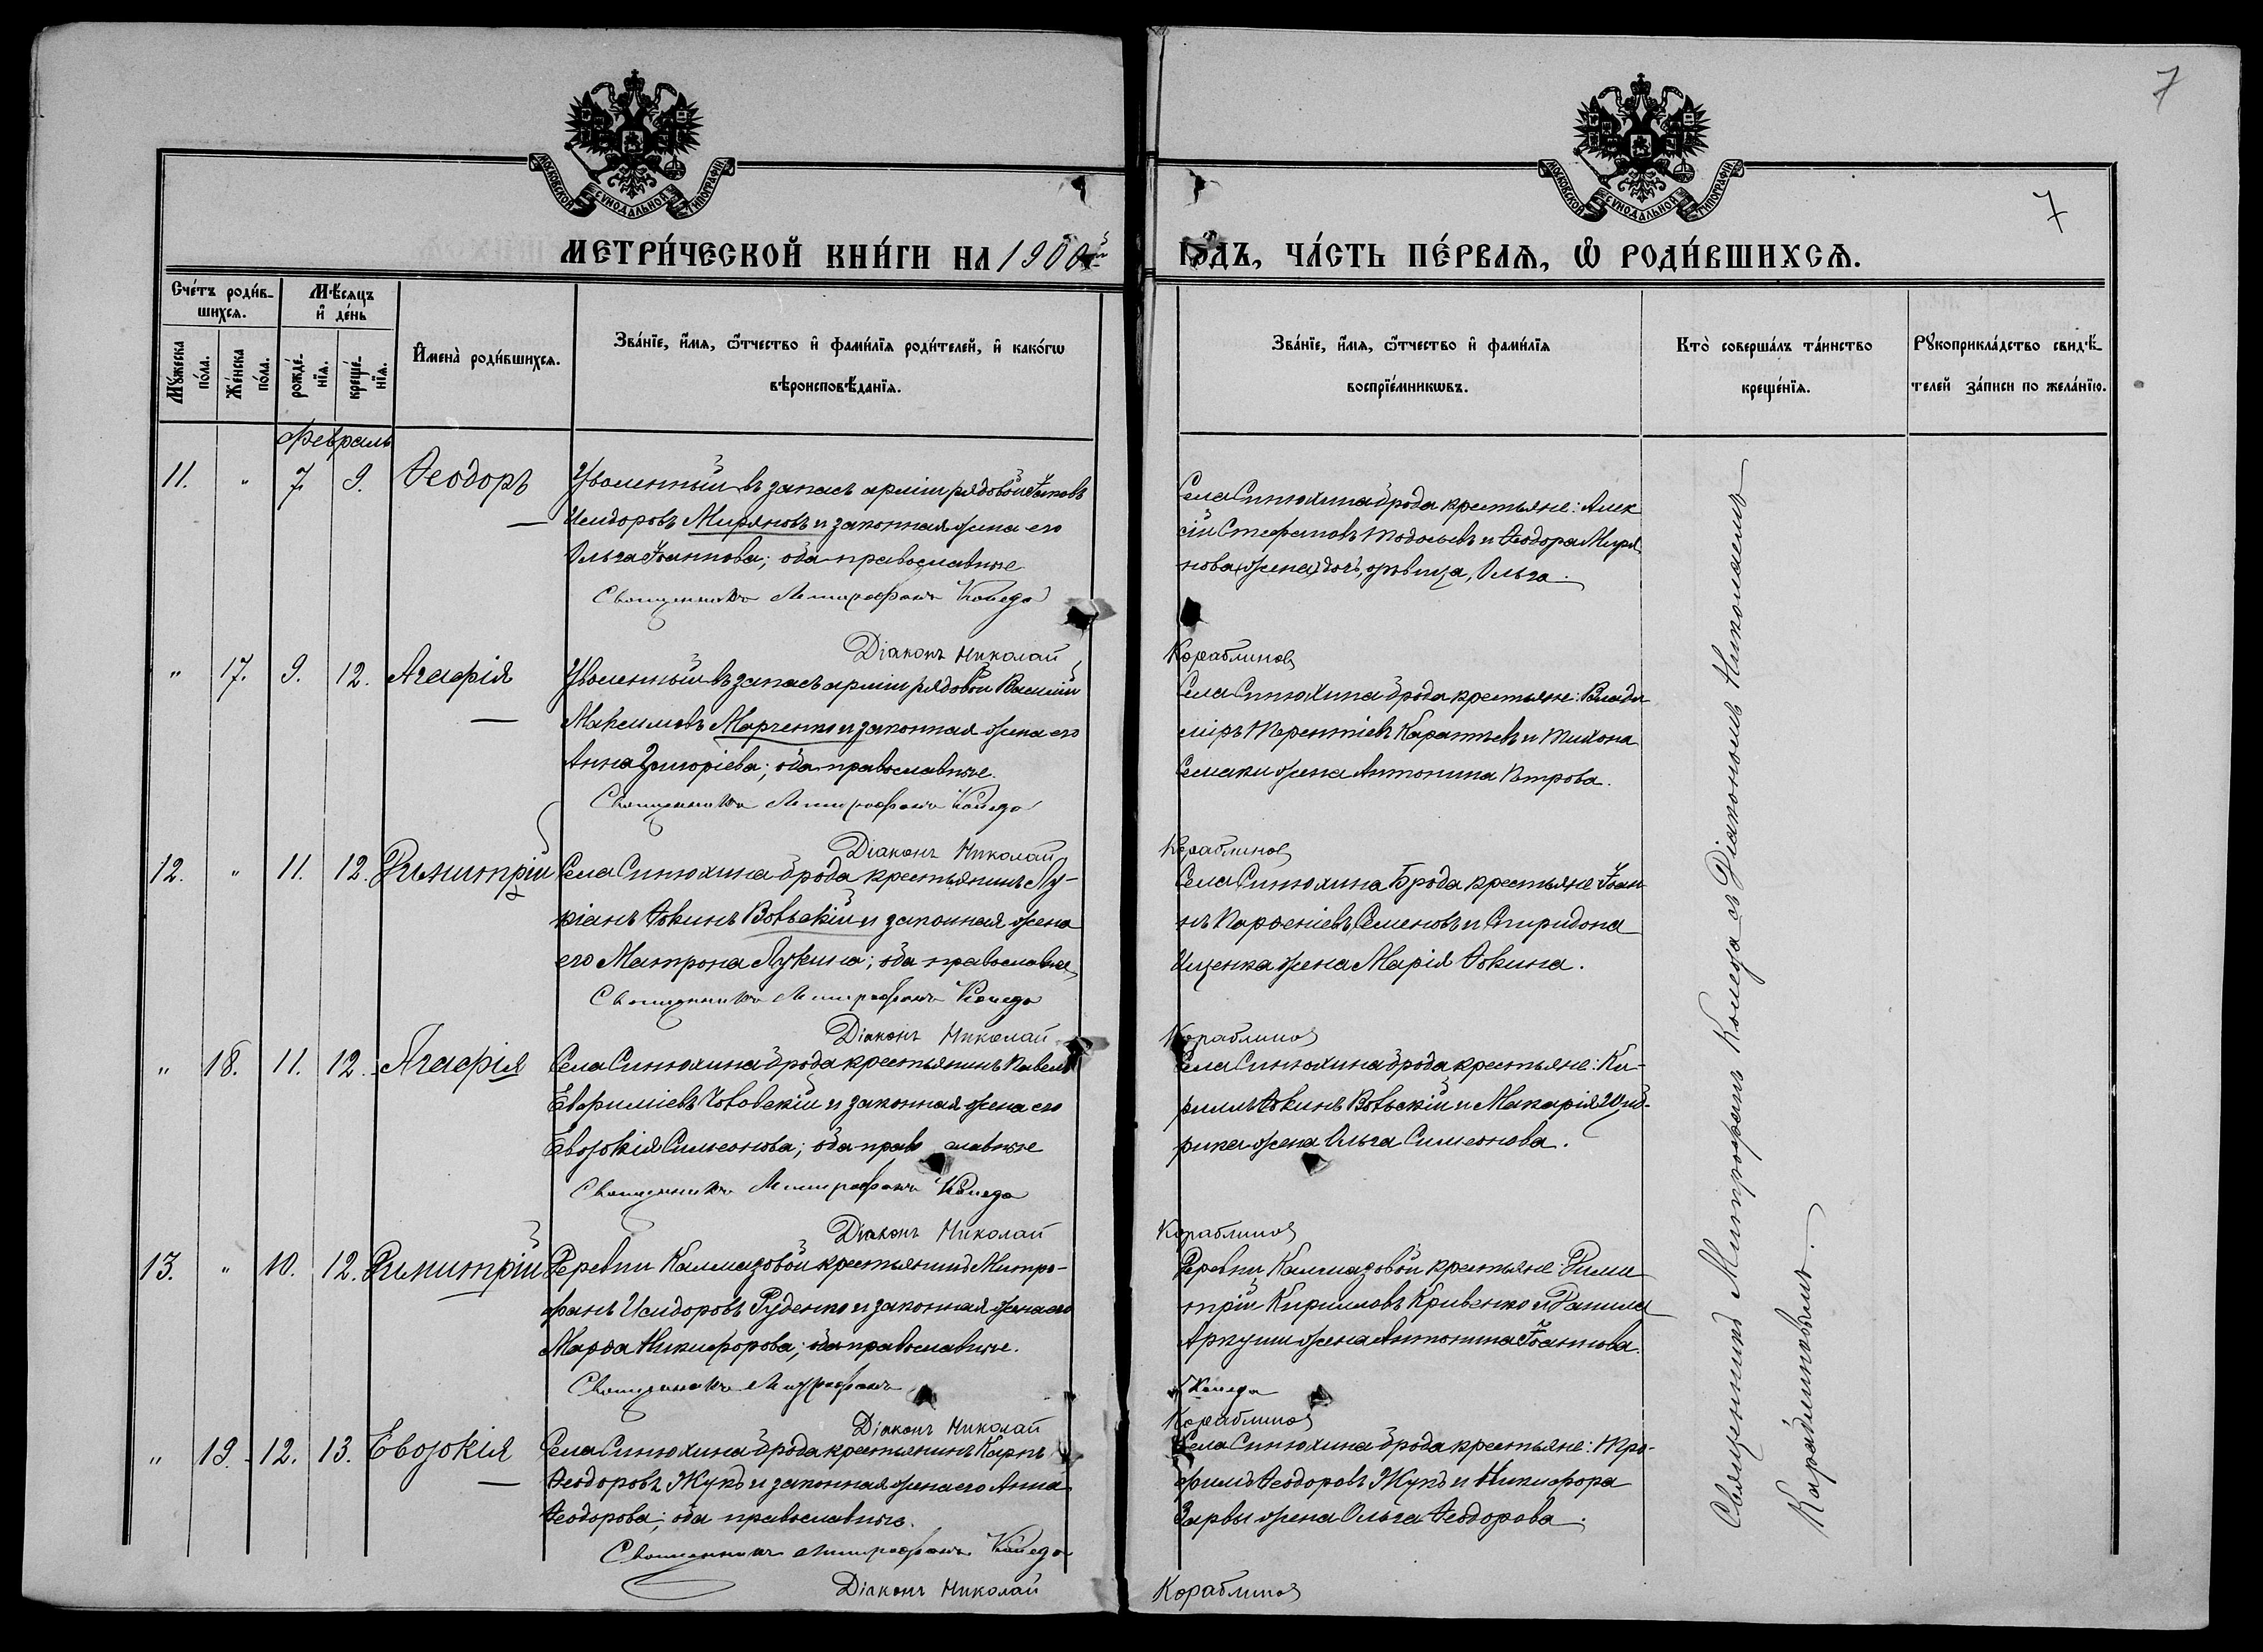 7
МОСКОВСКОЙ СѴНОДАЛЬНОЙ ТИПОГРАФІИ
МОСКОВСКОЙ СѴНОДАЛЬНОЙ ТИПОГРАФІИ
7
МЕТРИ́ЧЕСКОЙ КНИ́ГИ НА 1900й
ГО́ДЪ, ЧА́СТЬ ПЕ́РВАѦ, Ѡ РОДИ́ВШИХСѦ.
Сче́тъ роди́в-
шихсѧ.
Мѣ́сѧцъ
и҆ де́нь
Мꙋ́жеска
по́ла.
Же́нска
по́ла.
рожде́-
нїѧ.
креще́-
нїѧ.
И҆мена̀ роди́вшихсѧ.
Зва́нїе, и҆́мѧ, ѻ҆́тчество и҆ фами́лїѧ роди́телей, и҆ како́гѡ
вѣроисповѣ́данїѧ.
Зва́нїе, и҆́мѧ, ѻ҆́тчество и҆ фами́лїѧ
воспрїе́мникѡвъ.
Кто̀ соверша́лъ та́инство
креще́нїѧ.
Рꙋкоприкла́дство свидѣ́-
телей за́писи по жела́нїю.
Февраль
11. " 7. 9. Ѳеодоръ
Уволенный въ запасъ арміи рядовой Іаковъ
Исидоровъ Миряновъ и законная жена его
Ольга Іоаннова; оба православные
Священникъ Митрофанъ Коцега
Діаконъ Николай
Села Синюхина Брода крестьяне: Алек
сій Стефановъ Тодосьевъ и Ѳеодора Миря
нова (жена) дочь, дѣвица, Ольга.
Кораблиновъ
" 17. 9. 12. Агафія
Уволенный въ запасъ арміи рядовой Василій
Максимовъ Марченко и законная жена его
Анна Григоріева; оба православные.
Священникъ Митрофанъ Коцега
Діаконъ Николай
Села Синюхина Брода крестьяне: Влади
міръ Терентіевъ и Тихона
Семаки жена Антонина Петрова.
Кораблиновъ
12. " 11. 12. Димитрій
Села Синюхина Брода крестьянинъ Лу-
кіанъ Ѳокинъ Вовскій и законная жена
его Матрона Лукина; оба православные
Священникъ Митрофанъ Коцега
Діаконъ Николай
Села Синюхина Брода крестьяне Іоан
нъ Парѳеніевъ Семеновъ и Спиридона
Ищенка жена Марія Ѳокина.
Кораблиновъ
" 18. 11. 12. Агафія
Села Синюхина Брода крестьянинъ Павелъ
Евфиміевъ и законная жена его
Евдокія Симеонова; оба православные
Священникъ Митрофанъ Коцега
Діаконъ Николай
Села Синюхина Брода крестьяне: Ки-
риллъ Ѳокинъ Вовскій и Макарія Шид-
рика жена Ольга Симеонова.
Кораблиновъ
13. " 10. 12. Димитрій
Деревни Калмазовой крестьянинъ Митро-
фанъ Исидоровъ Руденко и законная жена его
Марѳа Никифорова; оба православные.
Священникъ Митрофанъ
Діаконъ Николай
Деревни Калмазовой крестьяне: Дими
трій Кирилловъ Кривенко и Данила
Аркуши жена Антонина Іоаннова.
Коцега
Кораблиновъ
" 19. 12. 13. Евдокія
Села Синюхина Брода крестьянинъ Карпъ
Ѳеодоровъ Жукъ и законная жена его Анна
Ѳеодорова; оба православные.
Священникъ Митрофанъ Коцега
Діаконъ Николай
Села Синюхина Брода крестьяне: Тро-
фимъ Ѳеодоровъ Жукъ и Никифора
Зарвы жена Ольга Ѳеодорова.
Кораблиновъ
Священникъ Митрофанъ Коцега съ Діакономъ Николаемъ
Кораблиновымъ.